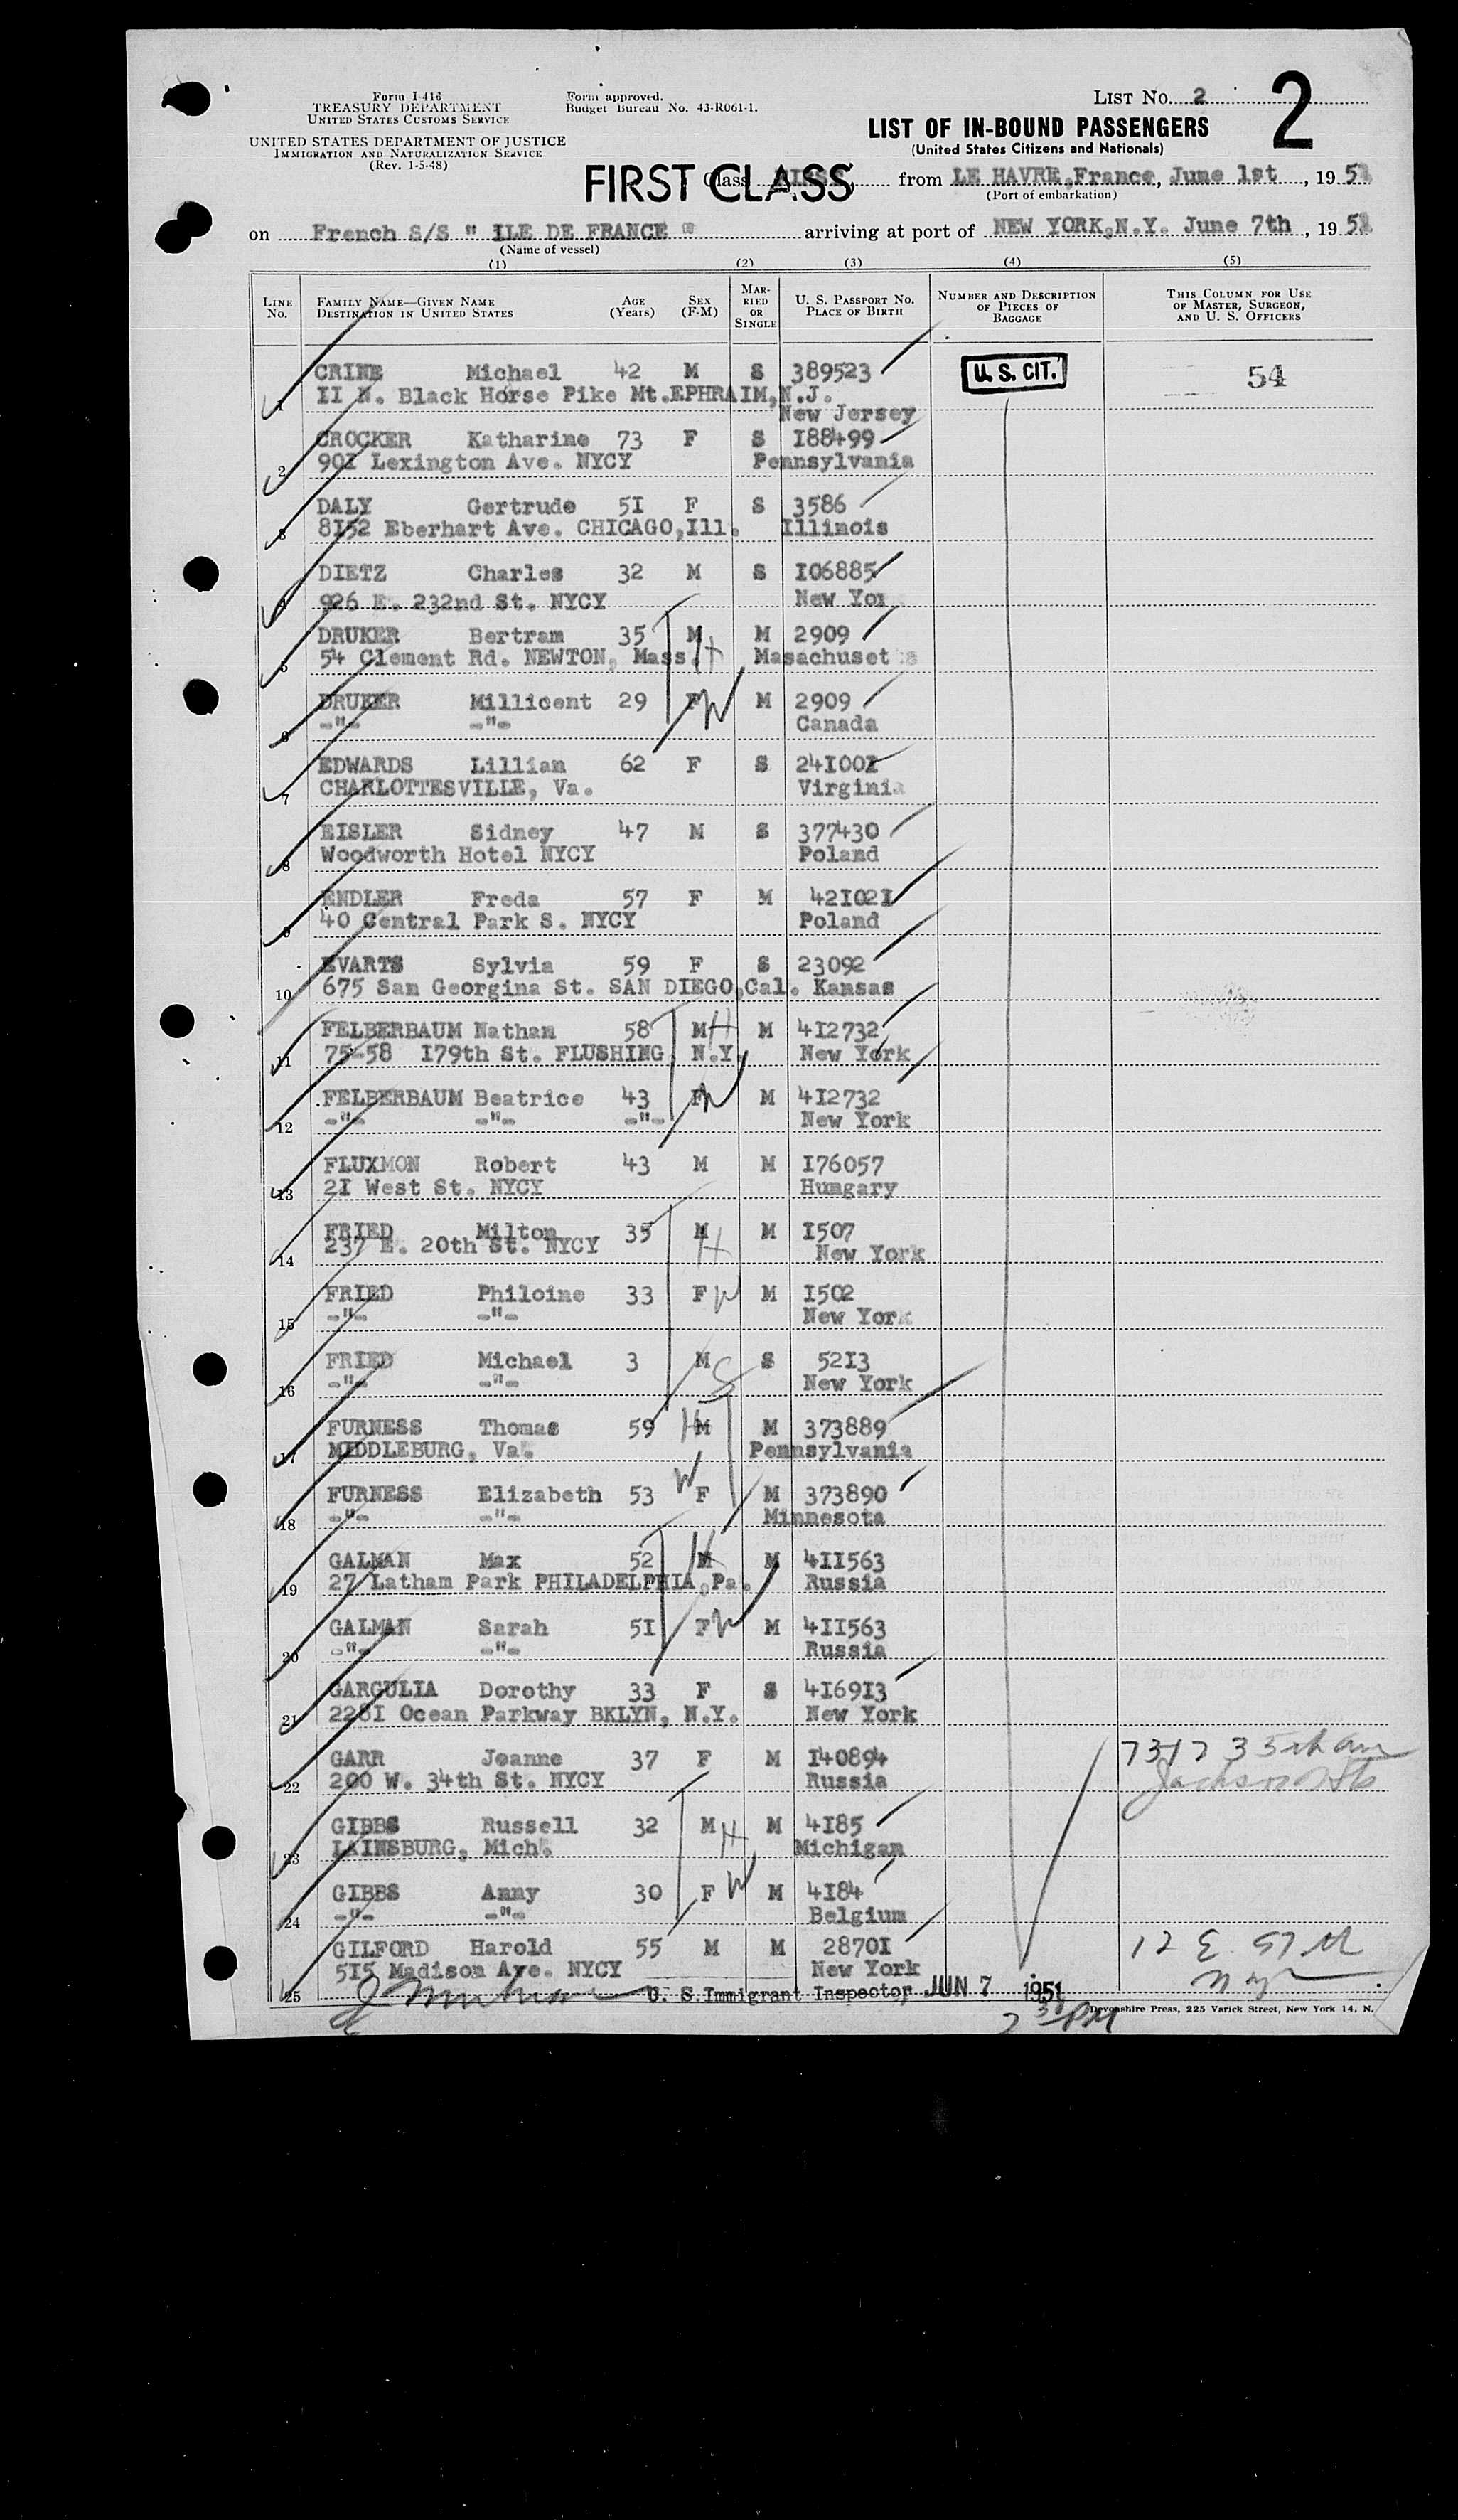 Form I-416
TREASURY DEPARTMENT
UNITED STATES CUSTOMS SERVICE
UNITED STATES DEPARTMENT OF JUSTICE
IMMIGRATION AND NATURALIZATION SERVICE
(Rev. 1-5-48)
Form approved.
Budget Bureau No. 43-R061-1.
LIST NO. 2
2
LIST OF IN-BOUND PASSENGERS
(United States Citizens and Nationals)
FIRST CLASS
Class from LE HAVRE,France, June 1st, 1951
(Port of embarkation)
on French S/S " ILE DE FRANCE " arriving at port of NEW YORK,N.Y. June 7th, 1951
(Name of vessel)
(1) (2) (3) (4) (5)
LINE NO. FAMILY NAME—GIVEN NAME DESTINATION IN UNITED STATES AGE (Years) SEX (F-M) MARRIED OR SINGLE U. S. PASSPORT NO. PLACE OF BIRTH NUMBER AND DESCRIPTION OF PIECES OF BAGGAGE THIS COLUMN FOR USE OF MASTER, SURGEON, AND U. S. OFFICERS
CRINE Michael 42 M S 389523 U. S. CIT. 54
1 II N. Black Horse Pike Mt.EPHRAIM,N.J.
New Jersey
CROCKER Katharine 73 F S I88499
2 90I Lexington Ave. NYCY Pennsylvania
DALY Gertrude 5I F S 3586
3 8I52 Eberhart Ave. CHICAGO,Ill. Illinois
DIETZ Charles 32 M S I06885
4 926 E. 232nd St. NYCY New Yor
DRUKER Bertram 35 M H M 2909
5 54 Clement Rd. NEWTON, Mass. Masachusetts
DRUKER Millicent 29 F W M 2909
6 -"- -"- Canada
EDWARDS Lillian 62 F S 24I00I
7 CHARLOTTESVILLE, Va. Virginia
EISLER Sidney 47 M S 377430
8 Woodworth Hotel NYCY Poland
ENDLER Freda 57 F M 42I02I
9 40 Central Park S. NYCY Poland
EVARTS Sylvia 59 F S 23092
10 675 San Georgina St. SAN DIEGO,Cal. Kansas
FELBERBAUM Nathan 58 M H M 4I2732
11 75-58 I79th St. FLUSHING, N.Y. New York
FELBERBAUM Beatrice 43 F W M 4I2732
12 -"- -"- -"- New York
FLUXMON Robert 43 M M I76057
13 2I West St. NYCY Hungary
FRIED Milton 35 M H M I507
14 237 E. 20th St. NYCY New York
FRIED Philoine 33 F W M I502
15 -"- -"- New York
FRIED Michael 3 M S S 52I3
16 -"- -"- New York
FURNESS Thomas 59 H M M 373889
17 MIDDLEBURG, Va. Pennsylvania
FURNESS Elizabeth 53 W F M 373890
18 -"- -"- Minnesota
GALMAN Max 52 M H M 4II563
19 27 Latham Park PHILADELPHIA,Pa. Russia
GALMAN Sarah 5I F W M 4II563
20 -"- -"- Russia
GARGULIA Dorothy 33 F S 4I69I3
21 228I Ocean Parkway BKLYN, N.Y. New York
GARR Jeanne 37 F M I40894 7317 35th Ave
22 200 W. 34th St. NYCY Russia Jackson Hts
GIBBS Russell 32 M H M 4I85
23 LAINSBURG, Mich. Michigan
GIBBS Anny 30 F W M 4I84
24 -"- -"- Belgium
GILFORD Harold 55 M M 2870I 12 E. 97th
25 5I5 Madison Ave. NYCY New York
U. S. Immigrant Inspector JUN 7 1951
2 30 PM
Devonshire Press, 225 Varick Street, New York 14, N.